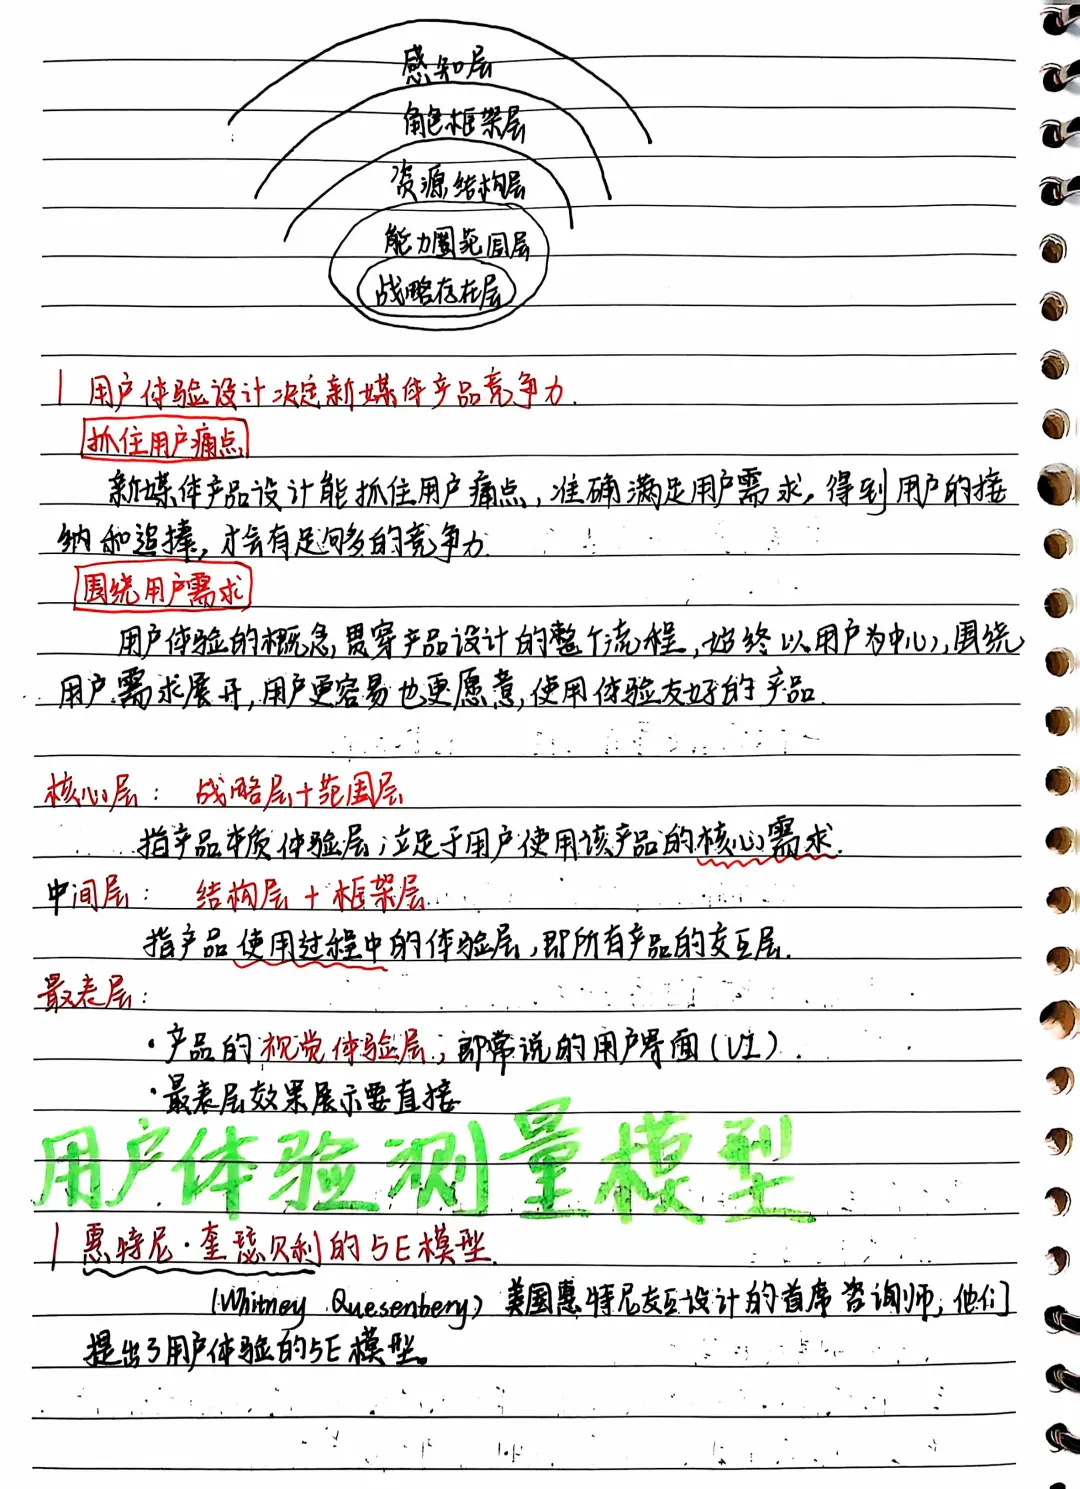 感知层
角色框架层
资源结构层
能力圈范围层
战略存在层
1 用户体验设计决定新媒体产品竞争力.
抓住用户痛点
新媒体产品设计能抓住用户痛点,准确满足用户需求,得到用户的接
纳和追捧,才会有足够多的竞争力.
围绕用户需求
用户体验的概念,贯穿产品设计的整个流程,始终以用户为中心,围绕
用户需求展开,用户更容易也更愿意,使用体验友好的产品.
核心层: 战略层+范围层
指产品本质体验层;立足于用户使用该产品的核心需求.
中间层: 结构层+框架层
指产品使用过程中的体验层,即所有产品的交互层.
最表层:
·产品的视觉体验层;即常说的用户界面(UI).
·最表层效果展示要直接
用户体验测量模型
1 惠特尼·奎瑟贝利的5E模型.
(Whitney Quesenbery) 美国惠特尼交互设计的首席咨询师,他们
提出了用户体验的5E模型。